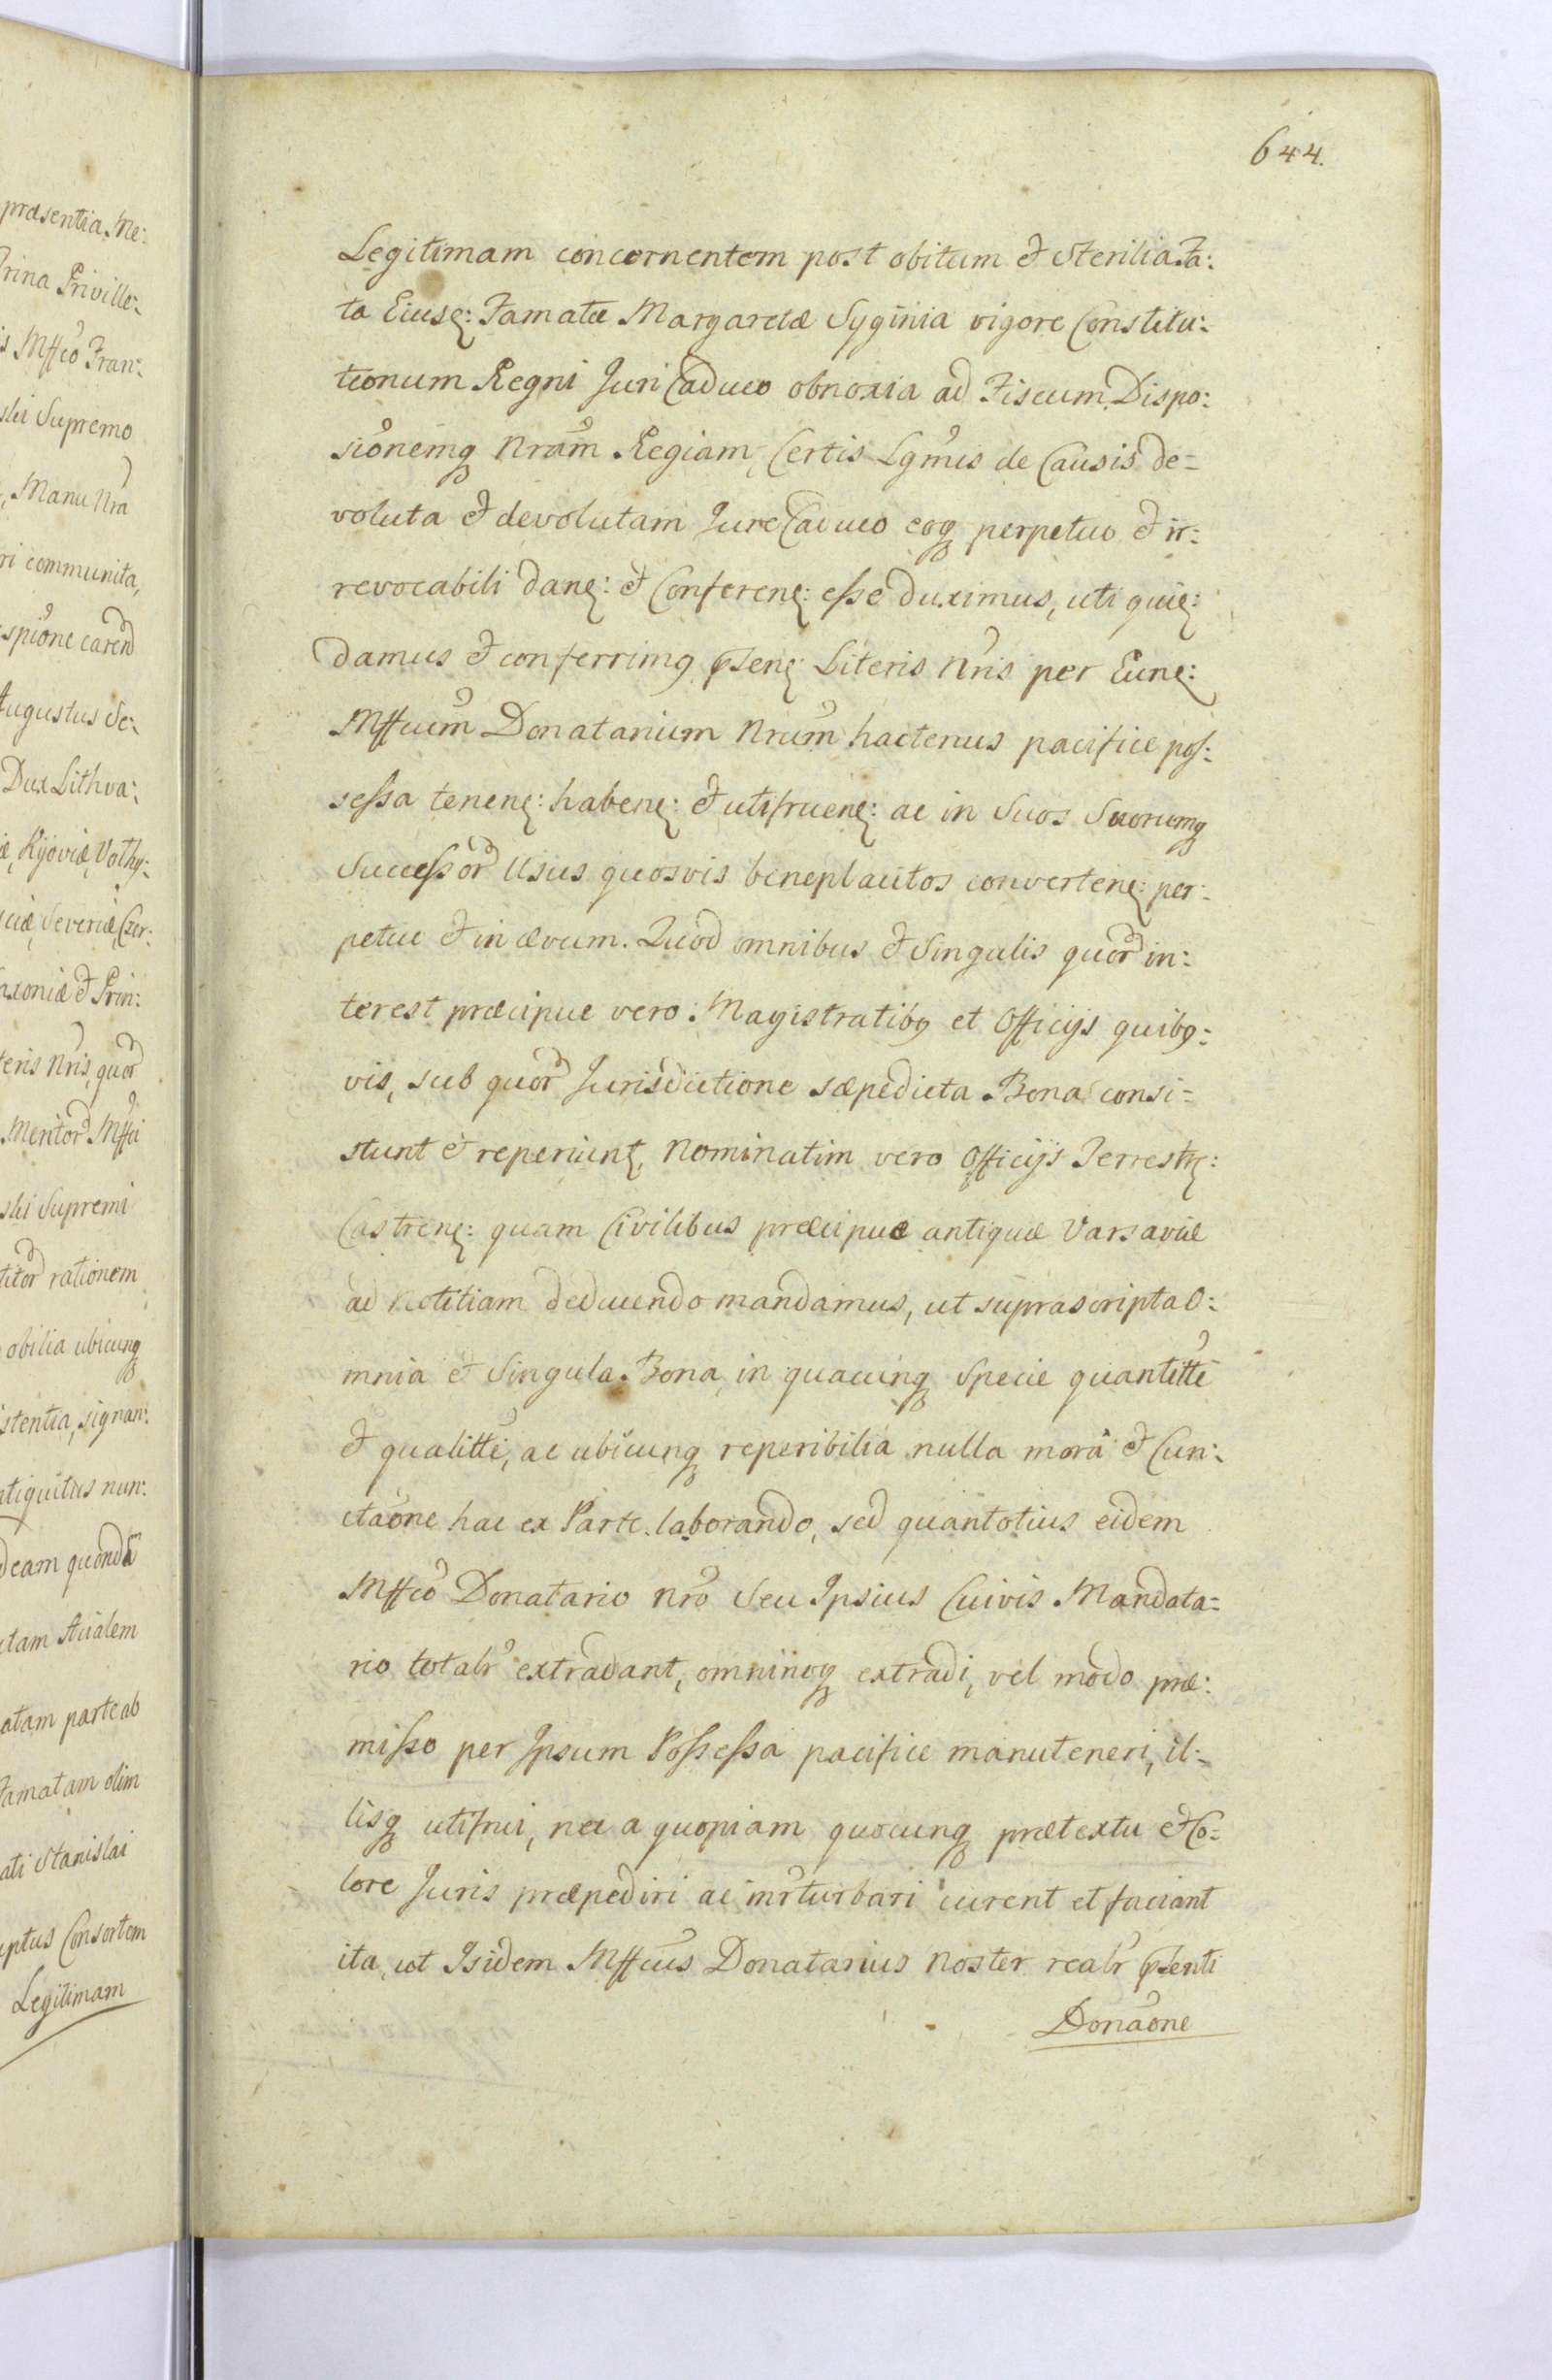 præsentia, Me:
Priville:
Mffco Fran:
Supremo
Manu Nra
communita,
carend
Augustus Se:
Dux Lithva:
Kijoviæ, Volhy:
Severiæ, Czer:
& Prin:
Nris, quor
Meritor Mffci
Supremi
rationem
ubicunq
signan:
nun:
quonda
parte ab
olim
Stanislai
Consortem
Legitimam
644.
Legitimam concernentem post obitum & Sterilia Fa:
ta Eiusꝫ: Famatæ Margaretæ Syginia vigore Constitu:
tionum Regni Juri Caduco obnoxia ad Fiscum, Dispo:
sionemq Nram Regiam, Certis Lgmis de Causis de=
voluta & devolutam Jure Caduco eoq perpetuo & ir:
revocabili danꝫ: & Conferenꝫ: esse duximus, uti quiꝫ:
damus & conferrimꝰ pntenꝫ Literis Nris per Eunꝫ:
Mffcum Donatarium Nrum hactenus pacifice pos:
sessa tenenꝫ: habenꝫ: & utifruenꝫ: ac in Suos Suorumq
Successor Usus quosvis beneplacitos convertenꝫ: per:
petue & in ævum. Quod omnibus & Singulis quor in:
terest præcipue vero: Magistratibꝰ et Officijs quibꝰ:
vis, sub quor Jurisdictione sæpedicta Bona consi=
stunt & reperiuntꝫ, Nominatim vero Officijs Terrestrꝫ:
Castrenꝫ: quam Civilibus præcipuæ antiquæ Varsaviæ
ad Notitiam deducendo mandamus, ut suprascripta O:
mnia & Singula Bona in quacunq Specie quantitte
& qualitte, ac ubicunq reperibilia nulla morâ & Cun:
ctaone hac ex Parte laborando, sed quantotius eidem
Mffco Donatario Nro Seu Ipsius Cuivis Mandata=
rio totalr extradant, omninoq extradi, vel modo præ:
misso per Ipsum Possessa pacifice manuteneri, il=
lisq utifrui, nec a quopiam quocunq prætextu & Co=
lore Juris præpediri ac inrturbari curent et faciant
ita, ut Isidem Mffcus Donatarius Noster realr pntenti
Donaone